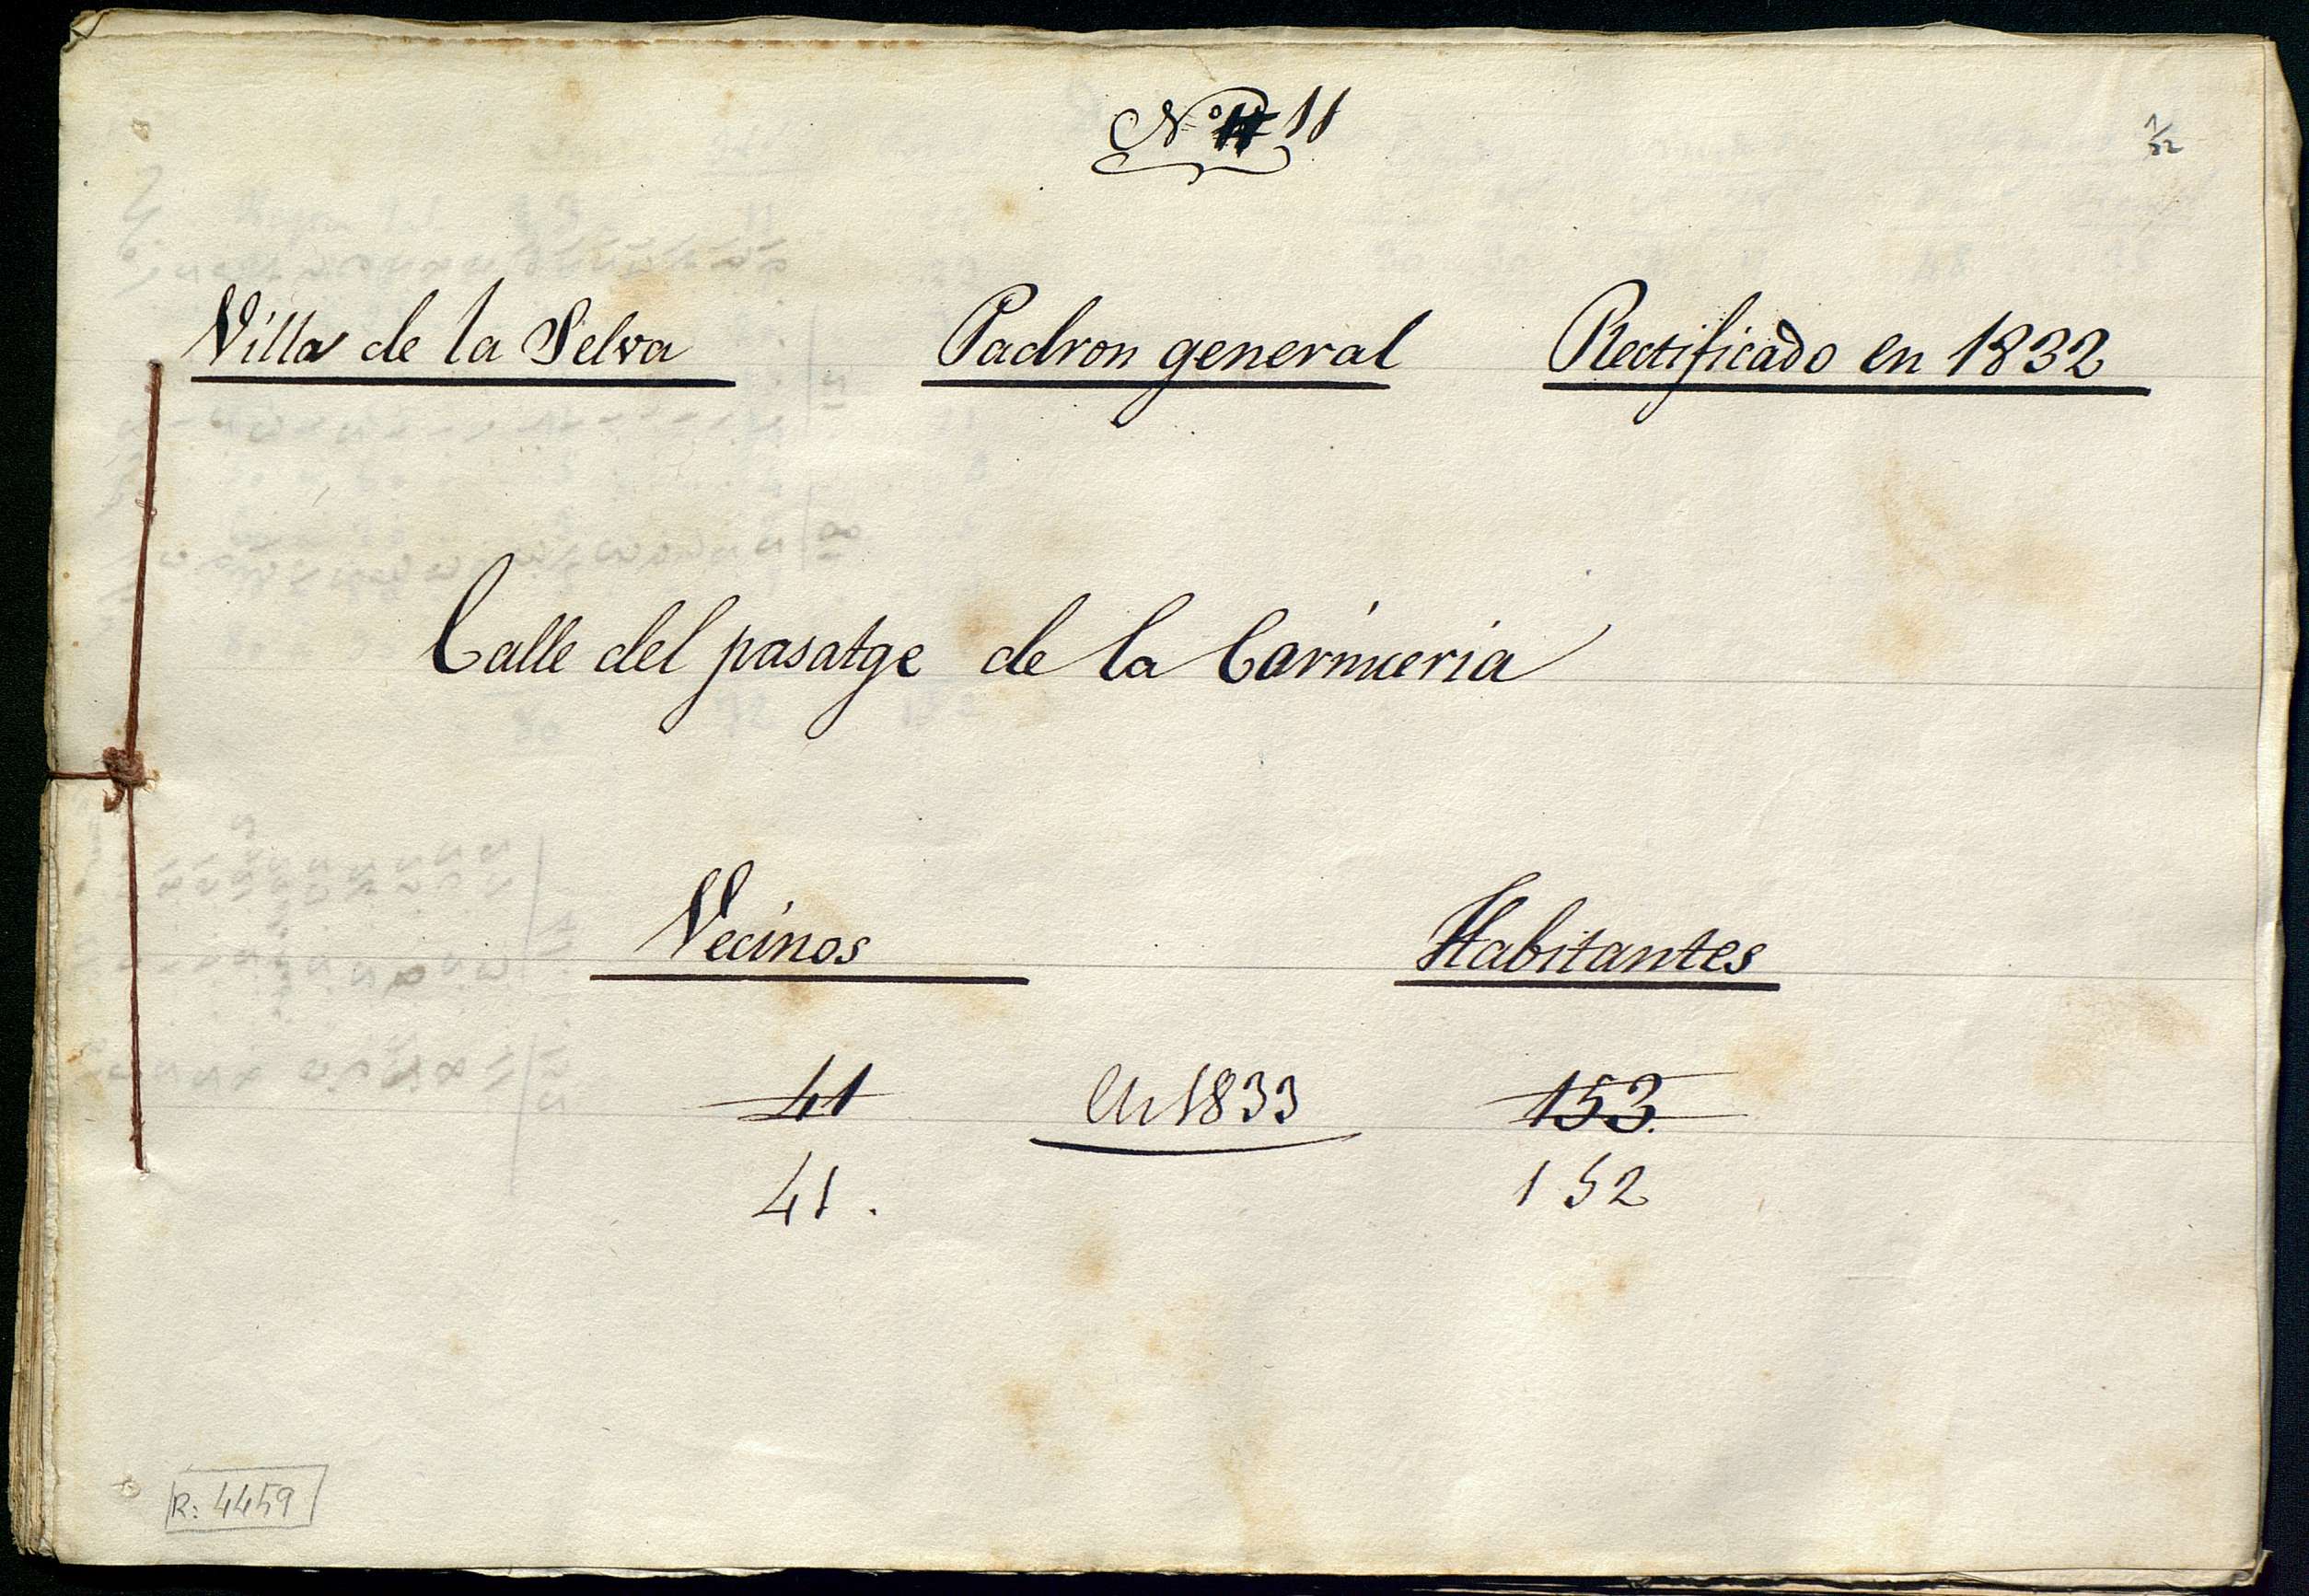 Nº 11
1/32
Villa de la Selva Padron general Rectificado en 1832
Calle del pasatge de la Carniceria
Vecinos Habitantes
41 En 1833 153.
41. 152
R: 4459